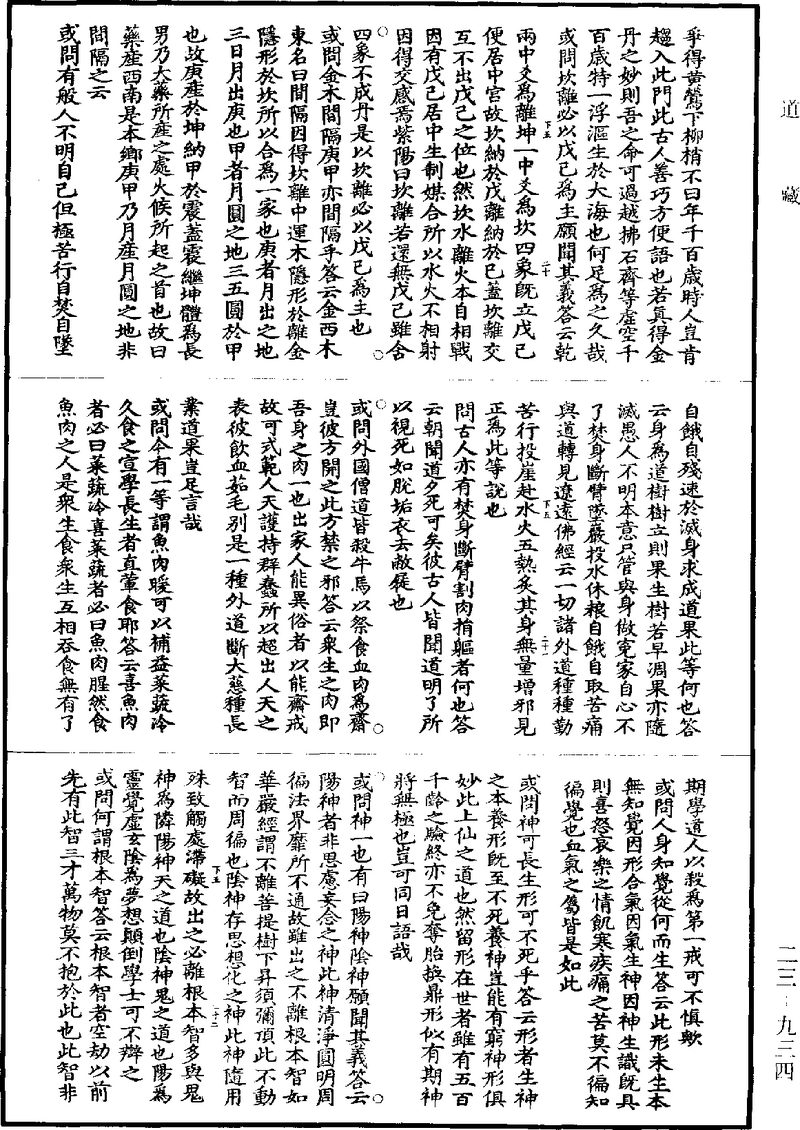 道藏
爭得黃鶯下柳梢不曰年千百歲時人豈肯
趨入此門此古人善巧方便語也若真得金
丹之妙則吾之命可過越拂石齊等虛空千
百歲特一浮漚生於大海也何足為之久哉
或問坎離必以戊己為主願聞其義答云乾
兩中爻為離坤一中爻為坎四象既立戊己
便居中宮故坎納於戊離納於己蓋坎離交
互不出戊己之位也然坎水離火本自相戰
因有戊己居中生制媒合所以水火不相射
因得交感焉紫陽曰坎離若還無戊己雖含
四象不成丹是以坎離必以戊己為主也
或問金木間隔庚甲亦間隔乎答云金西木
東名曰間隔因得坎離中運木隱形於離金
隱形於坎所以合為一家也庚者月出之地
三日月出庚也甲者月圓之地三五圓於甲
也故庚產於坤納甲於震蓋震繼坤體為長
男乃大藥所產之處火候所起之首也故曰
藥產西南是本鄉庚甲乃月產月圓之地非
間隔之云
或問有般人不明自己但極苦行自焚自墜
自餓自殘速於滅身求成道果此等何也答
云身為道樹樹立則果生樹若早凋果亦隨
滅愚人不明本意只管與身做冤家自心不
了焚身斷臂墜巖投水休粮自餓自取苦痛
與道轉見遼遠佛經云一切諸外道種種勤
苦行投崖赴水火五熱炙其身無量增邪見
正為此等說也
問古人亦有焚身斷臂割肉捐軀者何也答
云朝聞道夕死可矣彼古人皆聞道明了所
以視死如脫垢衣去敝屣也
或問外國僧道皆殺牛馬以祭食血肉為齋
豈彼方開之此方禁之邪答云眾生之肉即
吾身之肉一也出家人能異俗者以能齋戒
故可式範人天護持群蠢所以超出人天之
表彼飲血茹毛别是一種外道斷大慈種長
業道果豈足言哉
或問今有一等謂魚肉暖可以補益菜蔬冷
久食之宣學長生者真葷食耶答云喜魚肉
者必曰菜蔬冷喜菜蔬者必曰魚肉腥然食
魚肉之人是衆生食衆生互相吞食無有了
期學道人以殺為第一戒可不慎歟
或問人身知覺從何而生答云此形未生本
無知覺因形合氣因氣生神因神生識既具
則喜怒哀樂之情飢寒疾痛之苦莫不徧知
徧覺也血氣之屬皆是如此
或問神可長生形可不死乎答云形者生神
之本養形既至不死養神豈能有窮神形俱
妙此上仙之道也然留形在世者雖有五百
千齡之驗終亦不免奪胎換鼎形似有期神
將無極也豈可同日語哉
或問神一也有曰陽神陰神願聞其義答云
陽神者非思慮妄念之神此神清淨圓明周
徧法界靡所不通故雖出之不離根本智如
華嚴經謂不離菩提樹下昇須彌頂此不動
智而周徧也陰神存思想化之神此神隨用
殊致觸處滯礙故出之必離根本智多與鬼
神為隣陽神天之道也陰神鬼之道也陽為
靈覺虛玄陰為夢想顛倒學士可不辯之
或問何謂根本智答云根本智者空劫以前
先有此智三才萬物莫不抱於此也此智非
二三-九三四